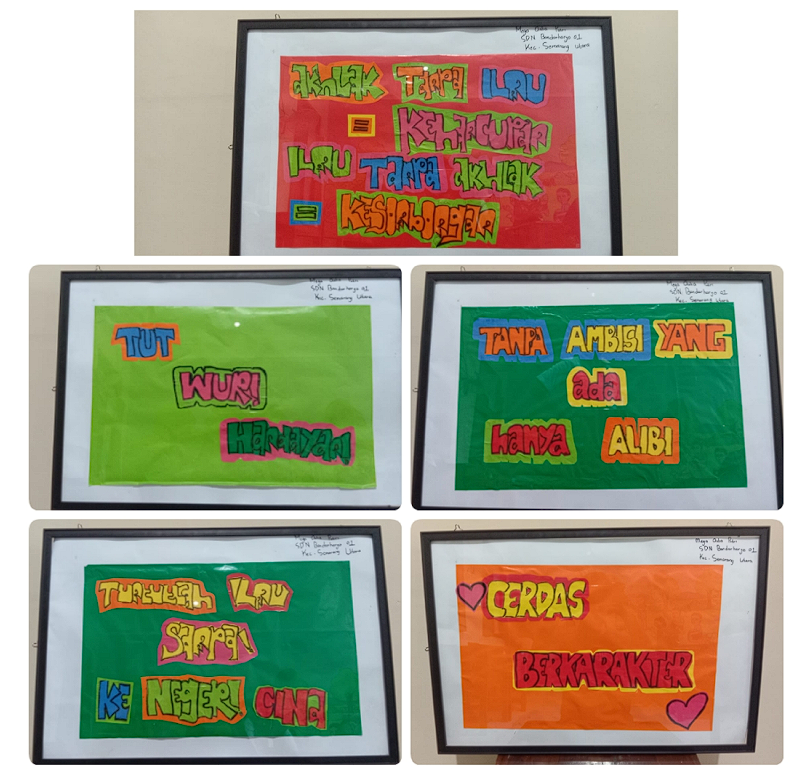 SDN Bandarharjo 01
Kec. Semarang Utara
AKHLAK TANPA ILMU
= KEHANCURAN
ILMU TANPA AKHLAK
= KESOMBONGAN
SDN Bandarharjo 01
Kec. Semarang Utara
TUT
WURI
HANDAYANI
SDN Bandarharjo 01
Kec. Semarang Utara
TANPA AMBISI YANG
ada
hanya ALIBI
SDN Bandarharjo 01
Kec. Semarang Utara
TUNTUTLAH ILMU
SAMPAI
KE NEGERI CINA
SDN Bandarharjo 01
Kec. Semarang Utara
CERDAS
BERKARAKTER